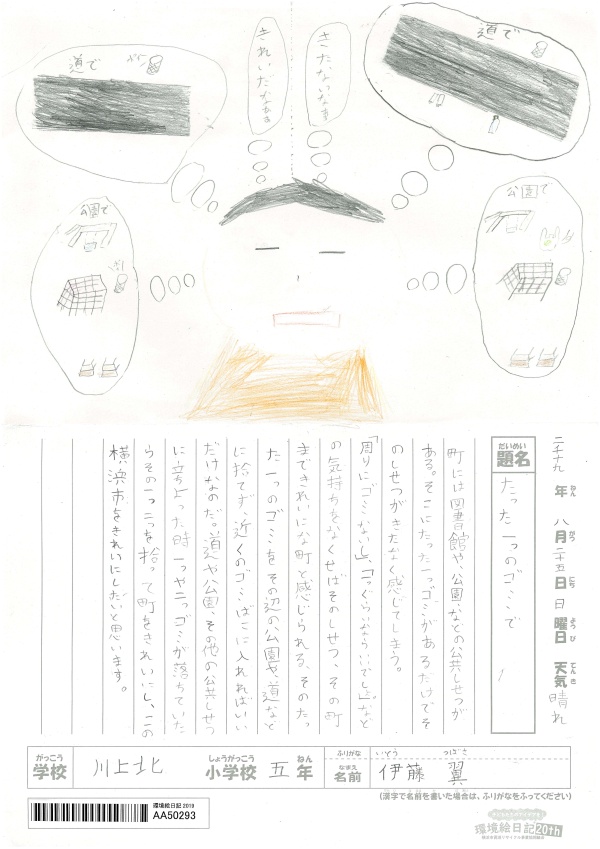 道で
きれいだなあ
きたないなあ
道で
公園で
公園で
二千十九年 八月二十五日 日曜日 天気 晴れ
ねん がつ にち ようび てんき
だいめい
題名
たった一つのゴミで
町には図書館や、公園、などの公共しせつが
ある。そこにたった一つゴミがあるだけでそ
のしせつがきたなく感じてしまう。
「周りにゴミがない」、「一つぐらいならいいでしょ。」など
の気持ちをなくせばそのしせつ、その町
まできれいにな町と感じられる、そのたっ
た一つのゴミをその辺の、公園や、道など
に捨てず、近くのゴミばこに入れればいい
だけなのだ。道や公園、その他の公共しせつ
に立ちよった時一つや二つゴミが落ちていた
らその一つ二つを拾って町をきれいにし、この
横浜市をきれいにしたいと思います。
がっこう しょうがっこう ねん
学校 川上北 小学校 五年
ふりがな いとう つばさ
なまえ
名前 伊藤 翼
(漢字で名前を書いた場合は、ふりがなをふってください)
環境絵日記 2019
AA50293
環境絵日記20th